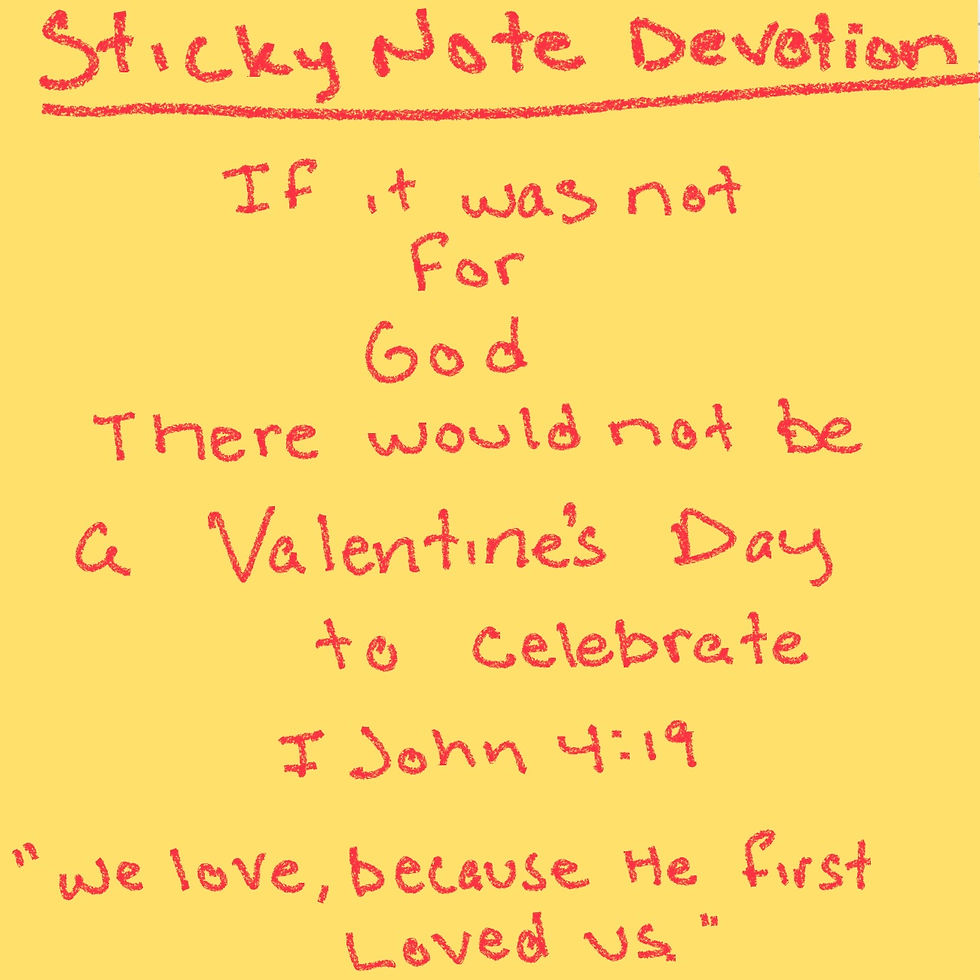 Sticky Note Devotion
If it was not
for
God
There would not be
a Valentine's Day
to celebrate
I John 4:19
"We love, because He first
Loved us."